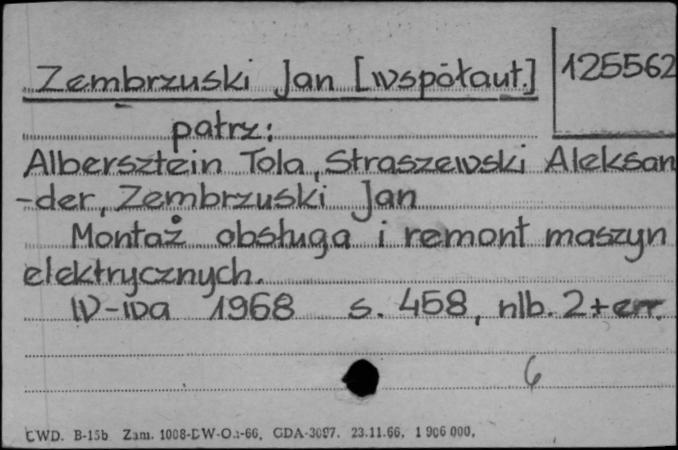 Zembrzuski Jan [współaut.]
125562
patrz:
Albersztein Tola, Straszewski Aleksan
-der, Zembrzuski Jan
Montaż obsługa i remont maszyn
elektrycznych.
W-wa 1968 s. 458, nlb. 2 + err.
6
CWD. B-15b Zam. 1008-DW-O.-66. GDA-3097. 23.11.66. 1 906 000.